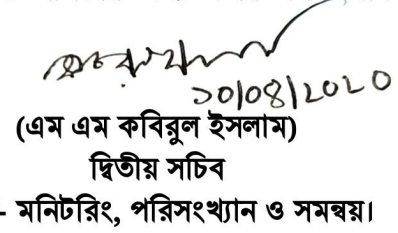 ১০/০৪/২০২০
(এম এম কবিরুল ইসলাম)
দ্বিতীয় সচিব
- মনিটরিং, পরিসংখ্যান ও সমন্বয়।